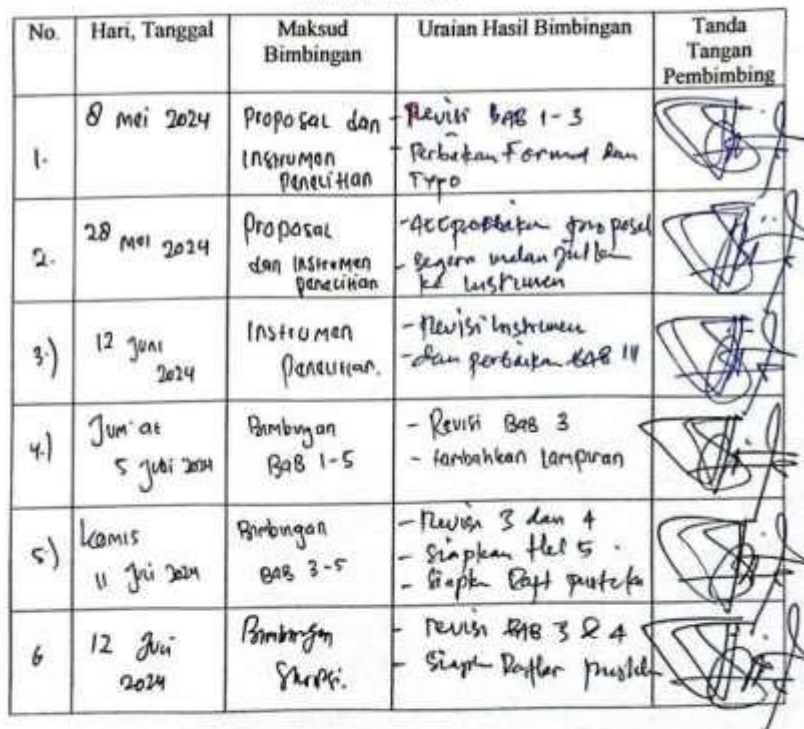 No. Hari, Tanggal Maksud Bimbingan Uraian Hasil Bimbingan Tanda Tangan Pembimbing
1. 8 Mei 2024 Proposal dan Instrumen Penelitian
- Revisi BAB 1-3
- Perbaikan Format dan Typo
2. 28 Mei 2024 Proposal dan Instrumen penelitian
- Acc proposal
- Segera melanjutkan ke Instrumen
3.) 12 Juni 2024 Instrumen Penelitian.
- Revisi Instrumen
- dan perbaikan BAB III
4.) Jum'at 5 Juli 2024 Bimbingan BaB 1-5
- Revisi BaB 3
- tambahkan Lampiran
5.) Kamis 11 Juli 2024 Bimbingan BAB 3-5
- Revisi 3 dan 4
- Siapkan 5
- Siapkan Daft pustaka
6 12 Juli 2024 Bimbingan Skripsi.
- revisi BAB 3 & 4
- Siapkan Daftar pustaka